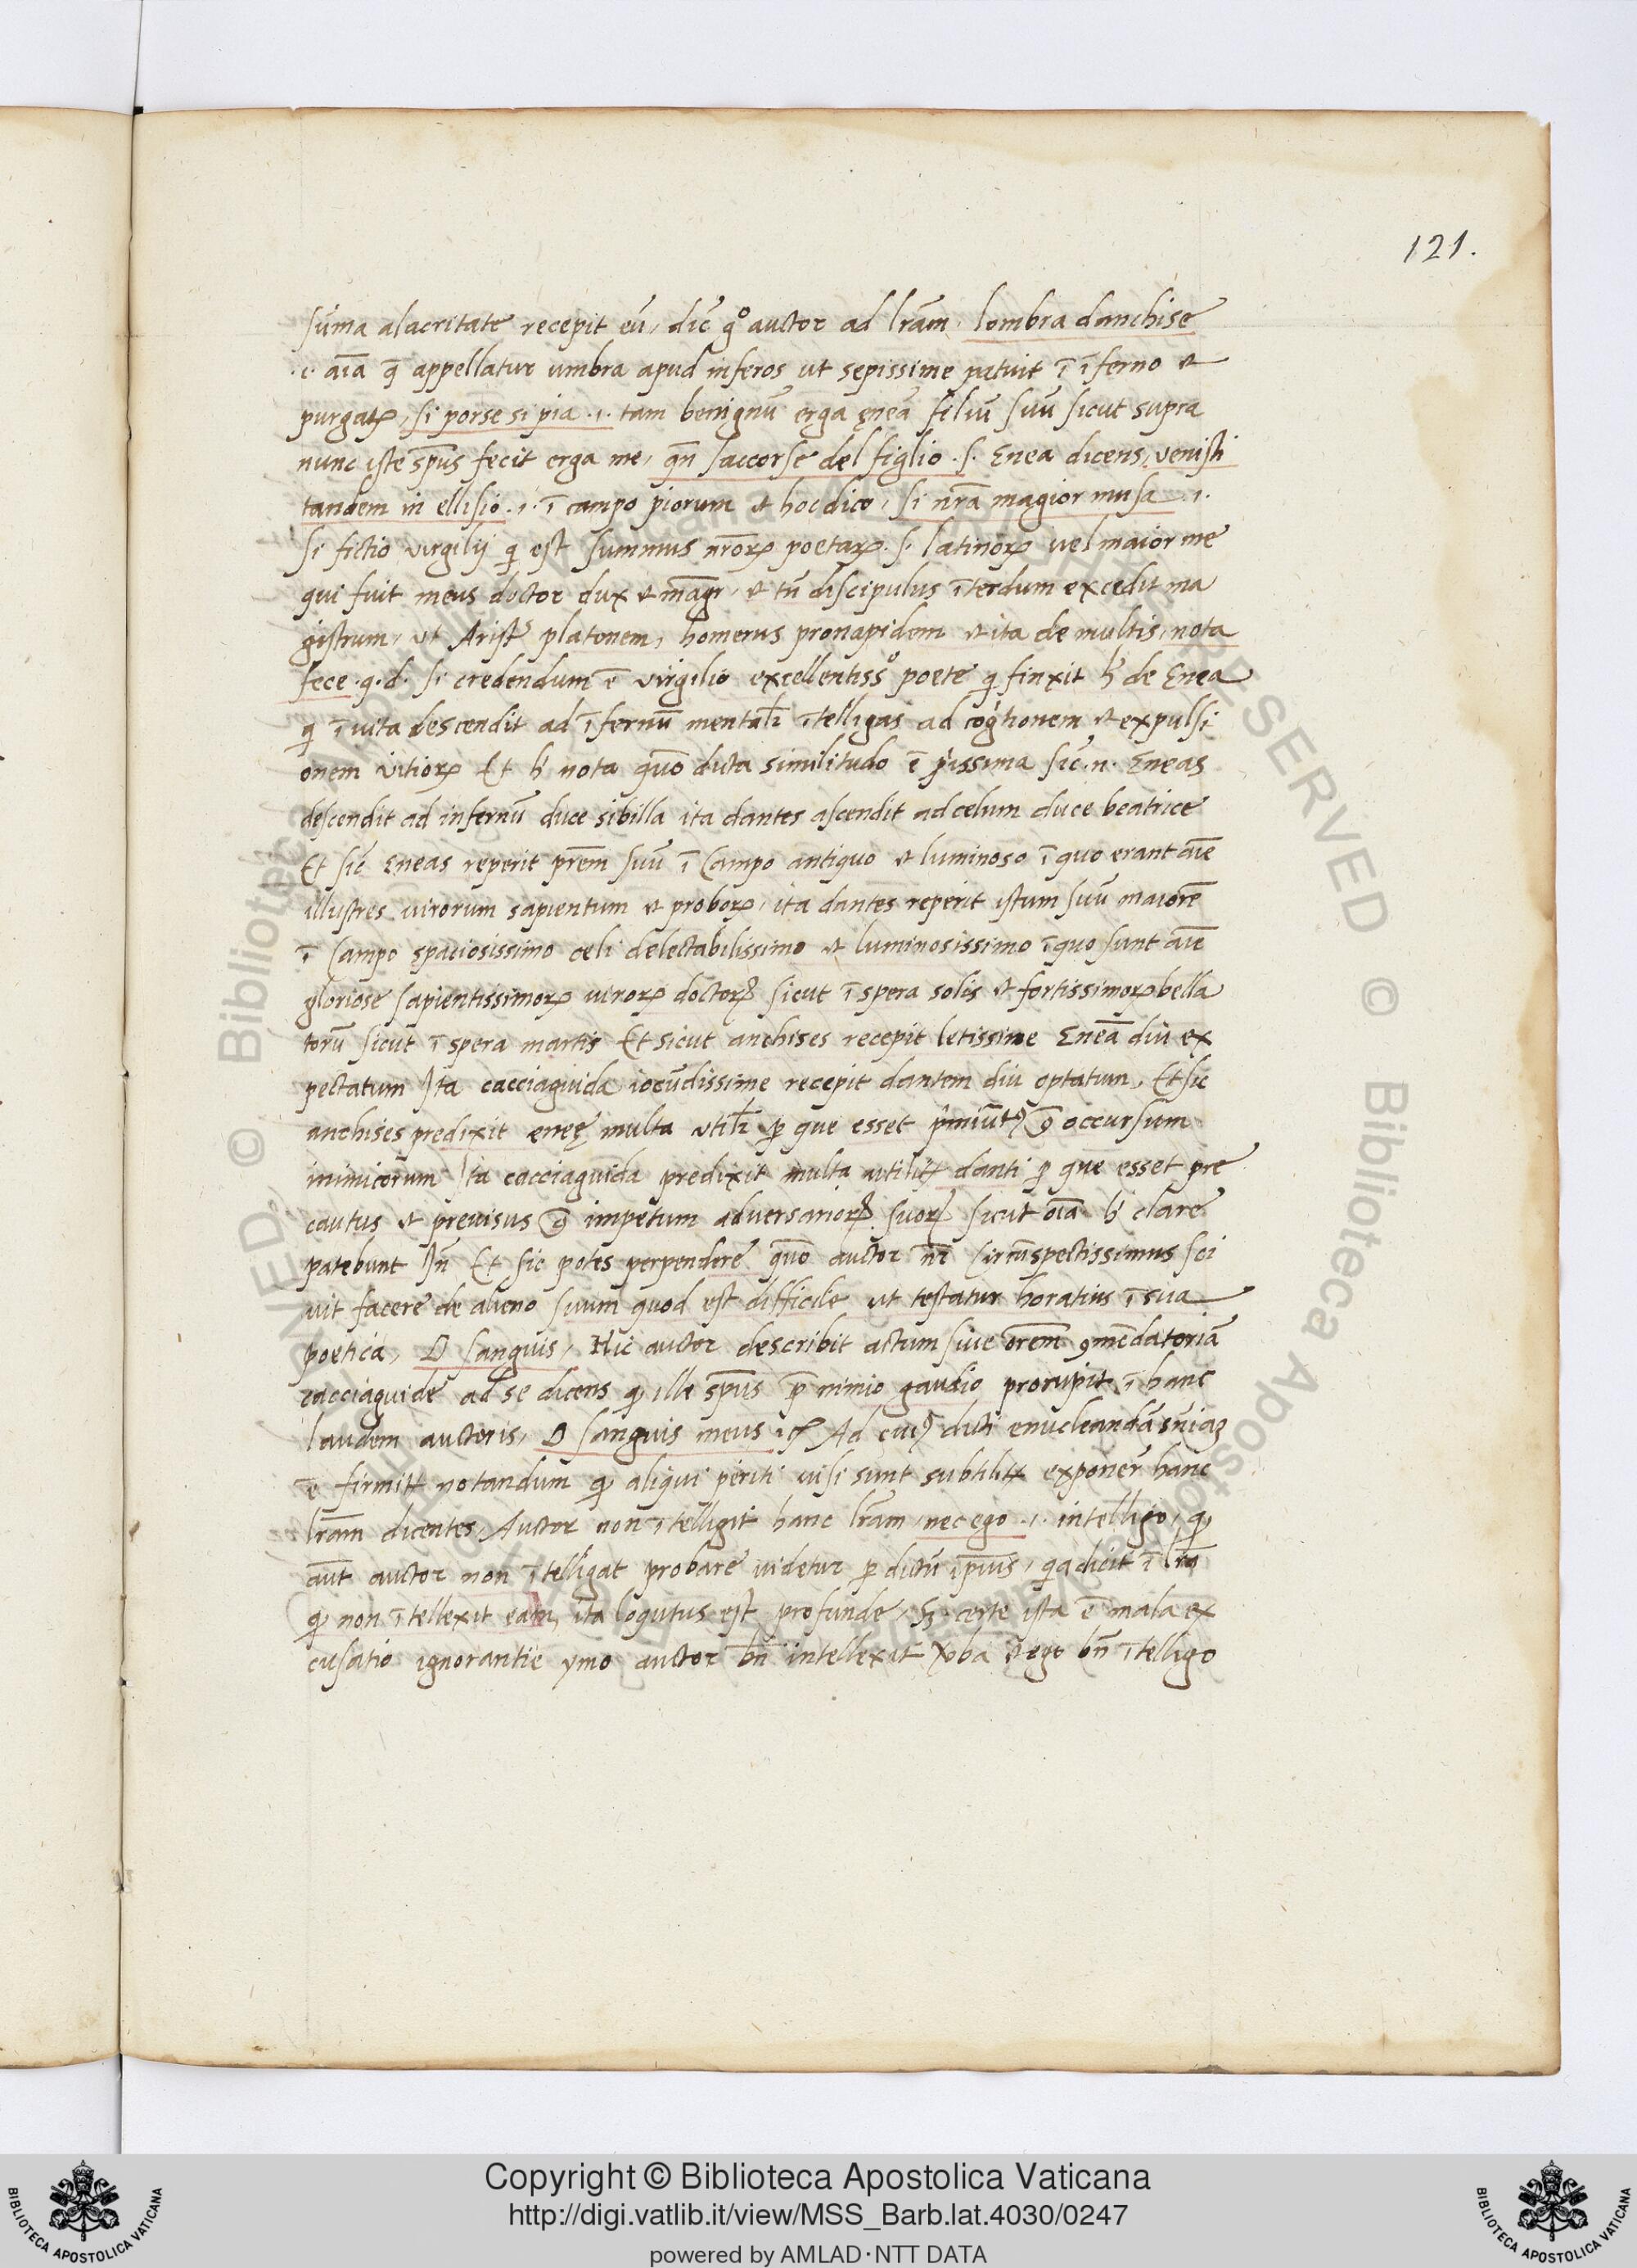 121.
sūma alacritate recepit eū, dic̄ gº auctor ad lr̄am. lombra danchise
.i. aīa q̄ appellatur umbra apud inferos ut sepissime patuit ī īferno et
purgatꝵ, si porse si pia .i. tam benignū erga eneā filiū suū sicut supra
nunc iste spūs fecit erga me, qn̄ saccorse del figlio .s. Enea dicens, venisti
tandem in ellisio .i. ī campo piorum et hoc dico, si nr̄a magior musa .i.
si fictio virgilij q̄ est summus nr̄oꝝ poetaꝝ .s. latinoꝝ vel maior me
qui fuit meus doctor dux et magr̄, et tn̄ discipulus īterdum excedit ma
gistrum, ut Arist' platonem, homerus pronapidem et ita de multis, nota
fece .q.d. si credendum ē virgilio excellentissº poete q̄ finxit h' de Enea
q̄ ī vita descendit ad īfernū mentalr̄ ītelligas ad cogtionem et expulsi
onem vitioꝝ Et h' nota quō dicta similitudo ē piissima sic̄ .n. Eneas
descendit ad infernū duce sibilla ita dantes ascendit ad celum duce beatrice
Et sic̄ Eneas reperit prēm suū ī campo antiquo et luminoso ī quo erant aīe
illustres virorum sapientum et proboꝝ, ita dantes reperit istum suū maiorē
ī campo spaciosissimo celi delectabilissimo et luminosissimo ī quo sunt aīe
gloriose sapientissimoꝝ viroꝝ doctoꝝ sicut ī spera solis et fortissimoꝝ bella
torū sicut ī spera martis Et sicut anchises recepit letissime Eneā diu ex
pectatum Ita cacciaguida iocūdissime recepit dantem diu optatum, Et sic
anchises predixit eneę multa utilr̄ ꝑ que esset p̄miūtꝰ ꝯ̄ occursum
inimicorum Ita cacciaguida predixit multa utilitꝵ danti ꝑ que esset pre
cautus et previsus ꝯ̄ impetum adversarioꝝ suoꝝ sicut oīa h' clare
patebunt In̄ Et sic potes perpendere quō auctor nr̄ circūspectissimus sci
vit facere de alieno suum quod est difficile ut testatur horatius ī sua
poetica, O sanguis, Hic auctor describit actum sive orēm ꝯmēdatoriā
cacciaguide ad se dicens q̄ ille spūs p̄ nimio gaudio prorupit ī hanc
laudem auctoris, O sanguis meus ⁊c̄ Ad cuiꝰ dicti enucleandā sn̄iaꝫ
ē firmitꝵ notandum q̄ aliqui periti visi sunt subtilitꝵ exponer̄ hanc
lr̄am dicentes, Auctor non ītelligit hanc lr̄am, nec ego .i. intelligo, q̄
aūt auctor non ītelligat probare videtur ꝑ dictū ipīus, q̄a dicit ī lr̄a
q̄ non ītellexit eam, ita loqutus est profunde, Sꝫ certe ista ē mala ex
cusatio ignorantie ymo auctor bn̄ intellexit v̄ba et ego bn̄ ītelligo
© Biblioteca Apostolica Vaticana
Copyright © Biblioteca Apostolica Vaticana
http://digi.vatlib.it/view/MSS_Barb.lat.4030/0247
powered by AMLAD·NTT DATA
BIBLIOTECA APOSTOLICA VATICANA
BIBLIOTECA APOSTOLICA VATICANA